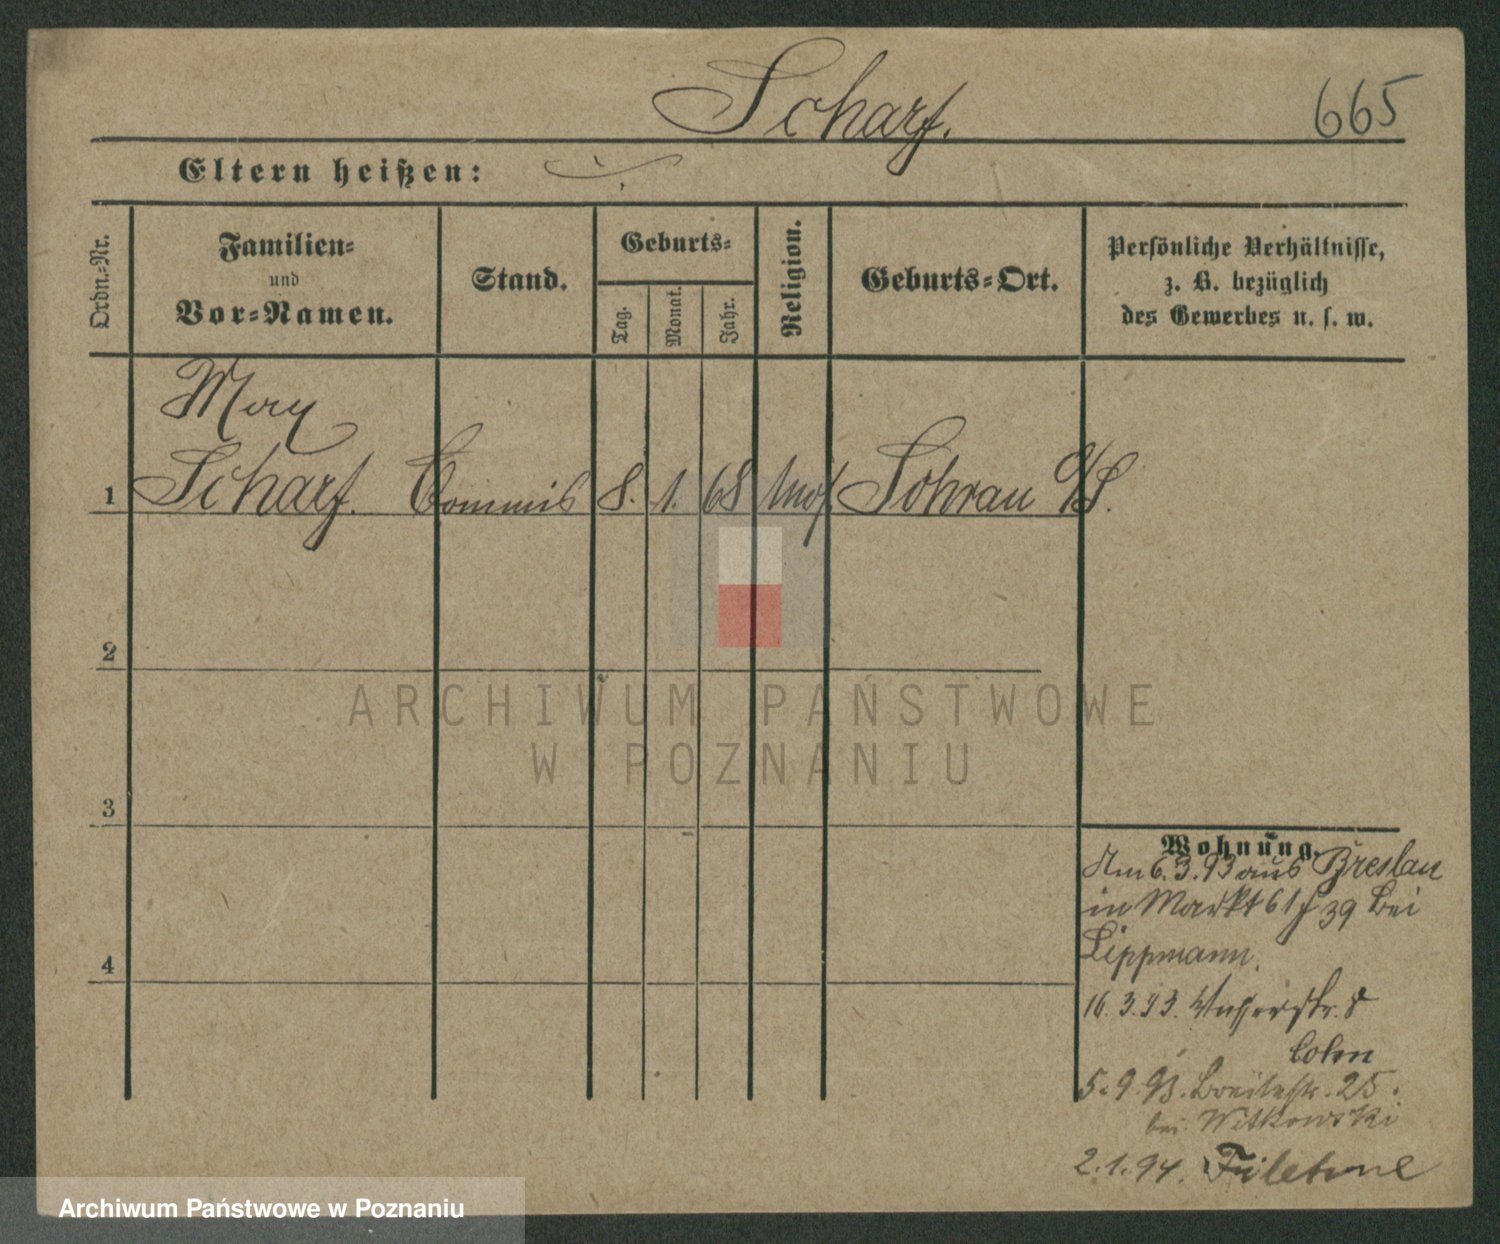 Scharf.
665
Eltern heißen:
Ordn.-Nr.
Familien-
und
Vor-Namen.
Stand.
Geburts-
Tag.
Monat.
Jahr.
Religion.
Geburts-Ort.
Persönliche Verhältnisse,
z. B. bezüglich
des Gewerbes u. s. w.
Max
1 Scharf. Commis 8. 1. 68 mos. Sohrau O/S.
2
3
4
Wohnung.
Am 6.3.93 aus Breslau
in Markt 61 39 bei
Lippmann.
16.3.93. Wasserstr. 8
Cohn
5.9.93. Breitestr. 25.
bei Witkowski
2.1.94. Filehne
ARCHIWUM PAŃSTWOWE
W POZNANIU
Archiwum Państwowe w Poznaniu